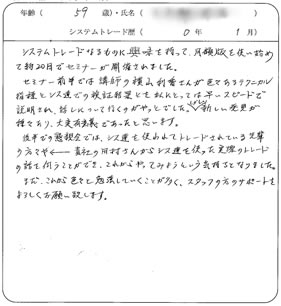 年齢( 59 歳)・氏名(
システムトレード歴( 0 年 1 月)
システムトレードなるものに興味を持って、月額版を使い始め
て約20日でセミナーが開催されました。
セミナー前半では講師の横山利香さんが色々なテクニカル
指標とシス達での検証結果ともわたしにとっては早いスピードで
説明され、話しについて行くのがやっとでした。しかし、新しい発見が
種々あり、大変有意義であったと思います。
後半での懇親会では、シス達を使われてトレードされている先輩
の方々や 貴社の西村さんからシス達を使った実際のトレード
の話を伺うことができ、これからやってみようという気持ちとなりました。
まだ、これから色々と勉強していくことが多く、スタッフの方のサポートを
よろしくお願い致します。